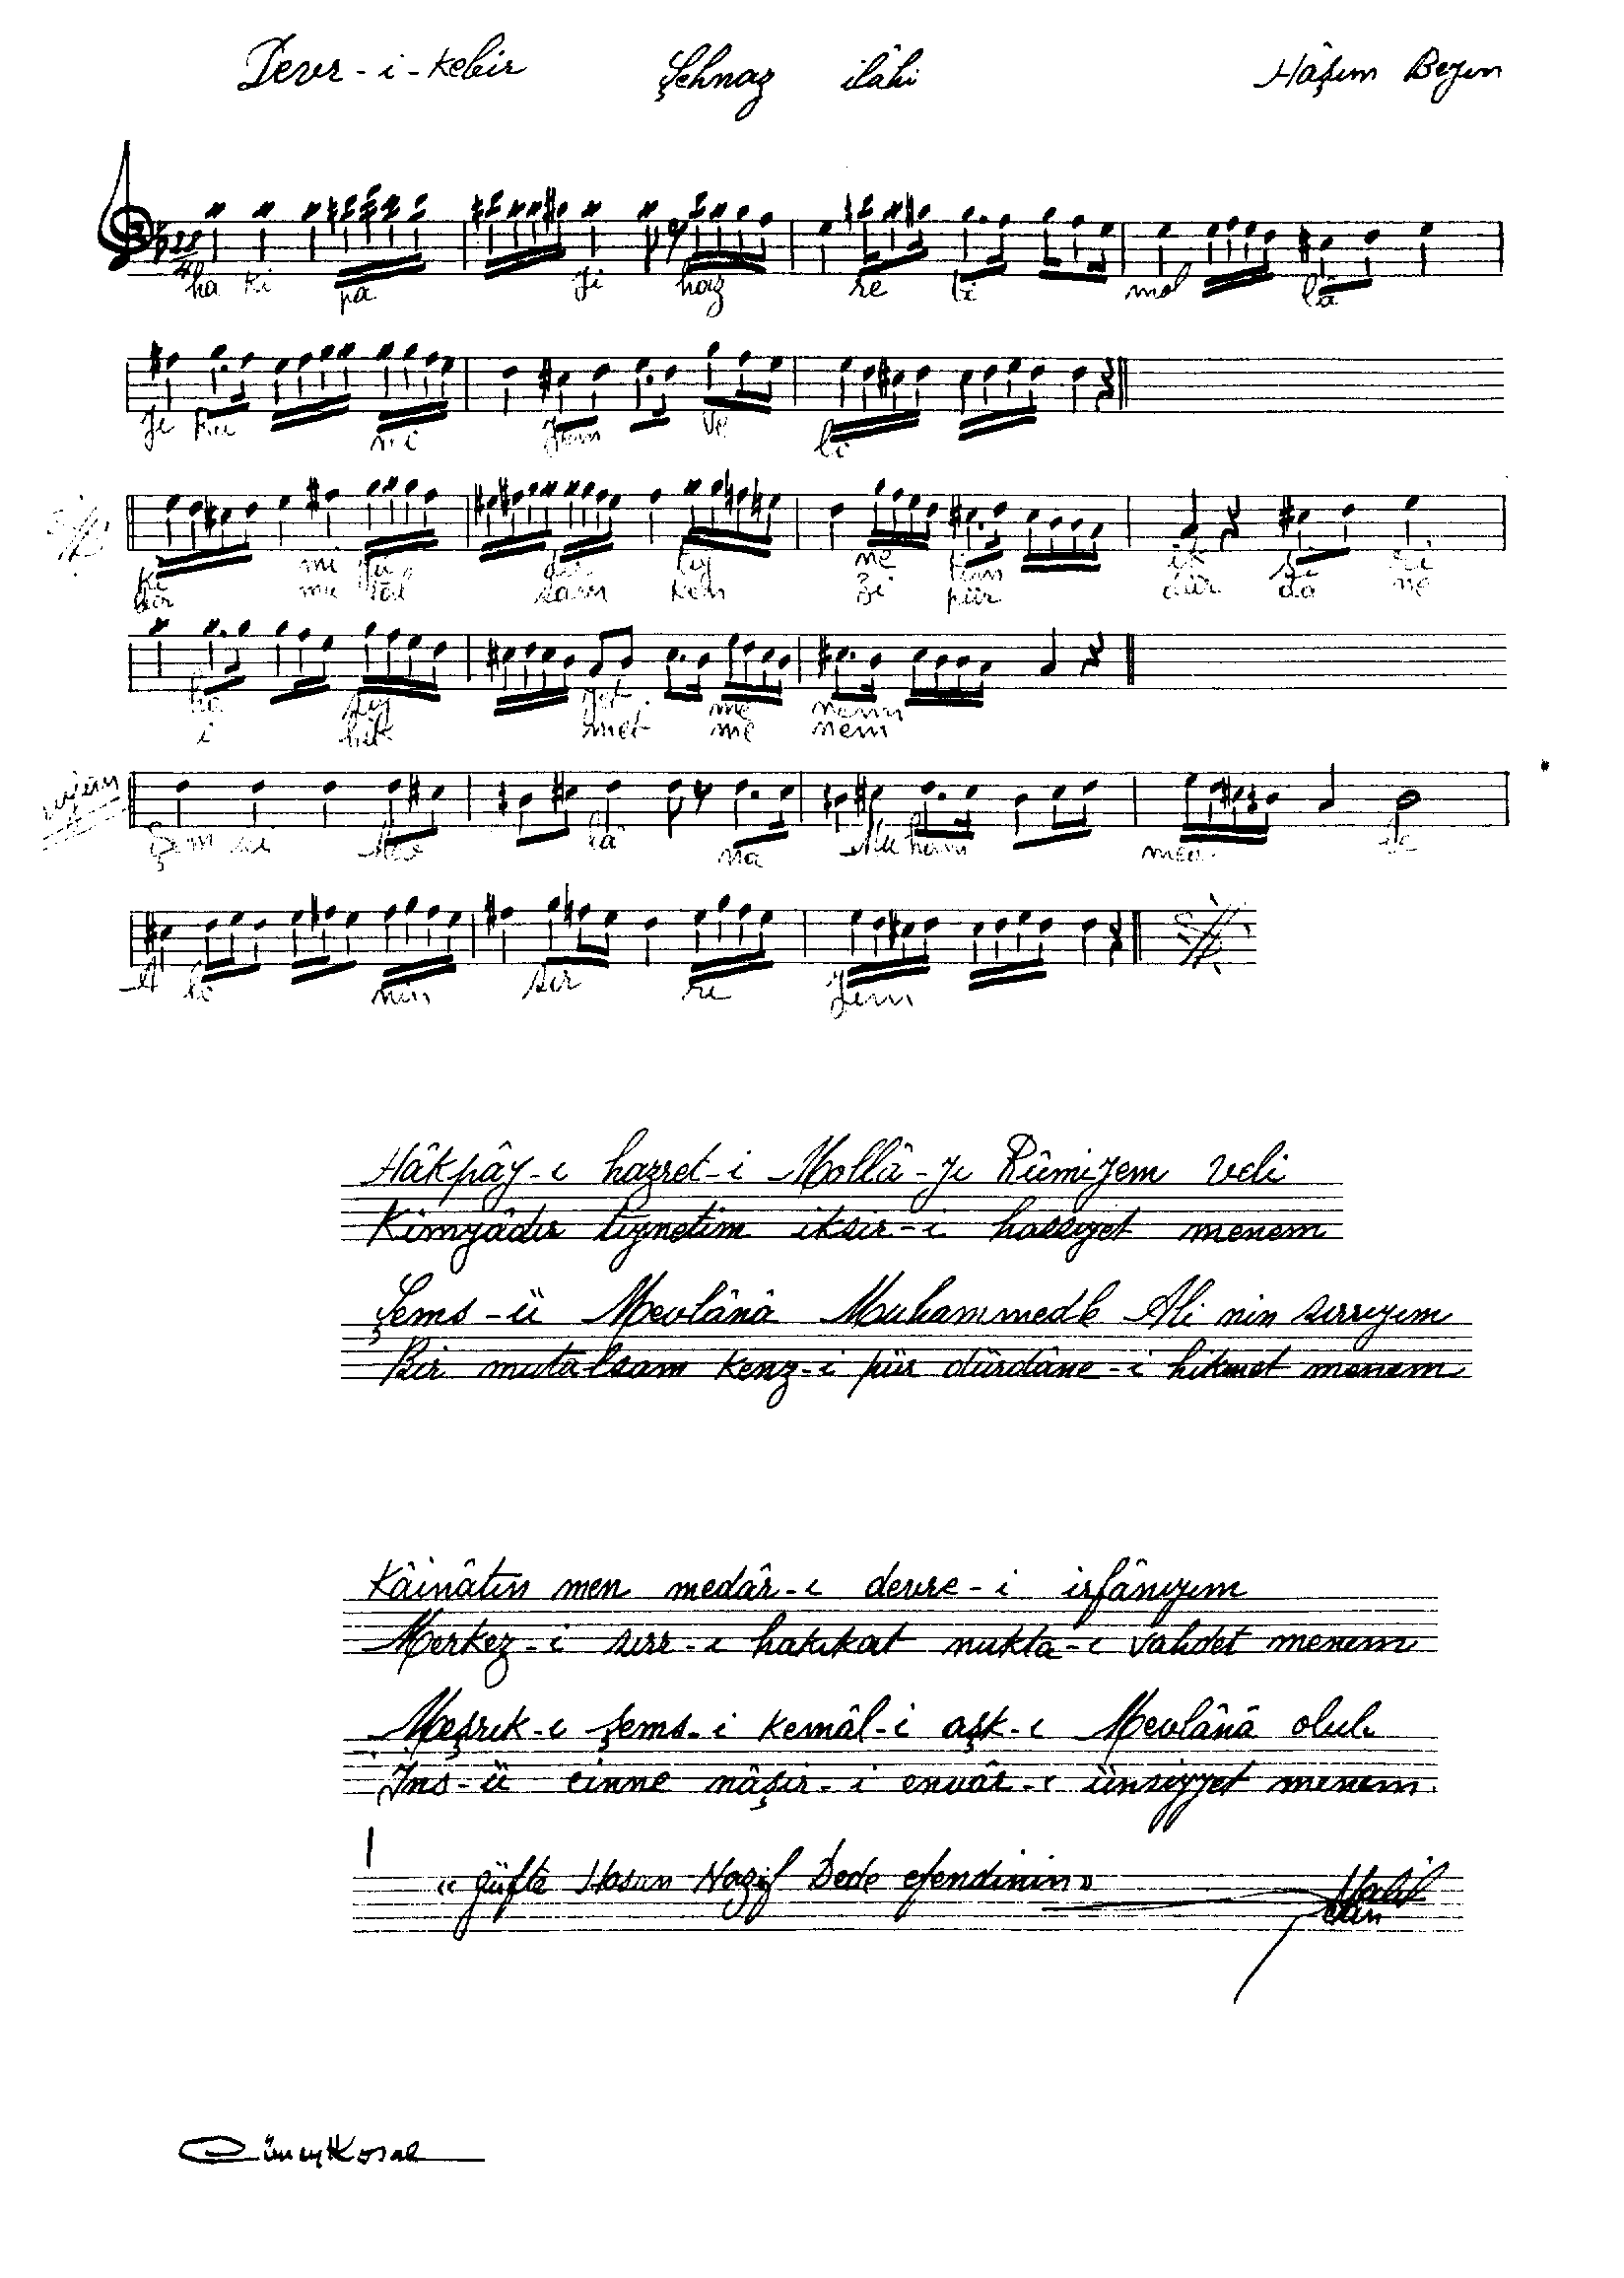 Devr-i-kebir Şehnaz ilâhi Hâşım Beyin
28/4
ha ki pa yi haz re ti mol lâ
yi Rû mi yem ve li
ki mi yâ dır ty ne tim ik si ri
bir mu tal sam ken zi pür dür da ne
ha siy yet me nem
i hik met me nem
miyan Şem sü Mev lâ nâ Mu ham med le
A li nin sır rı yem
Hâkpây-ı hazret-i Mollâ-yı Rûmiyem veli
Kimyâdır tıynetim iksir-i hassiyet menem
Şems-ü Mevlânâ Muhammedle Ali nin sırrıyım
Bir mutalsam kenz-i pür dürdâne-i hikmet menem
Kâinâtın men medâr-ı devre-i irfânıyım
Merkez-i sırr-ı hakıkat nukta-ı vahdet menem
Meşrık-ı şems-i kemâl-i aşk-ı Mevlânâ olub
İns-ü cinne nâşir-i envâr-ı ünsiyyet menem
"güfte Hasan Nazif Dede efendinin"
Halil Can
Cüneyt Kosal